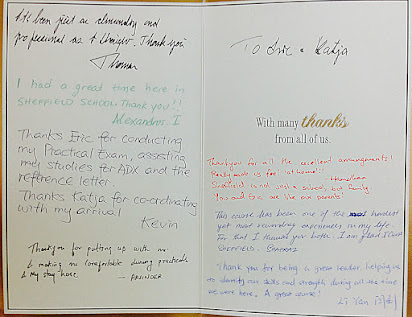 It's been just as demanding and
professional as I thought. Thank you
Thomas
I had a great time here in
SHEFFIELD SCHOOL. Thank you!!
Alexandros. I
Thanks Eric for conducting
my Practical Exam, assisting
my studies for ADX and the
reference letter
Thanks Katja for co-ordinating
with my arrival
Kevin
Thank you for putting up with me
& making me comfortable during practicals
& my stay here.
To Eric & Katja
With many thanks
from all of us.
Thank you for all the excellent arrangements!
Really made us feel at home!!!
Sheffield is not just a school, but family.
You and Eric are like our parents!
This course has been one of the hardest
yet most rewarding experiences in my life.
For that I thank you both. I am glad I chose
SHEFFIELD.
Thank you for being a great teacher, helping us
to identify our skills and strength during all the time
we were here. A great course!
Li Yan